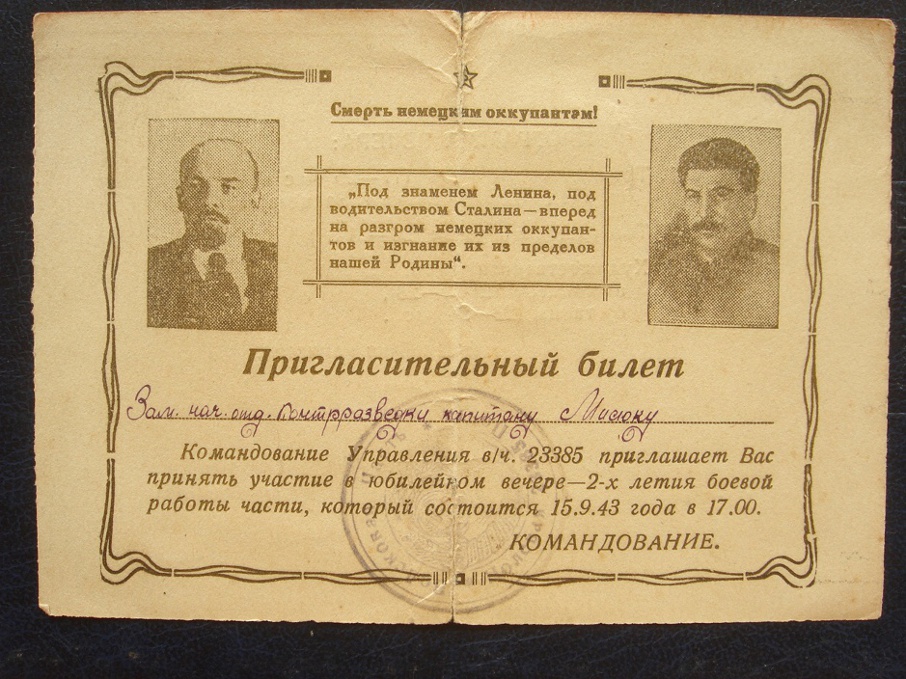 Смерть немецким оккупантам!
„Под знаменем Ленина, под
водительством Сталина—вперед
на разгром немецких оккупан-
тов и изгнание их из пределов
нашей Родины“.
Пригласительный билет
Зам. нач. отд. Контрразведки капитану
Командование Управления в/ч. 23385 приглашает Вас
принять участие в юбилейном вечере—2-х летия боевой
работы части, который состоится 15.9.43 года в 17.00.
КОМАНДОВАНИЕ.